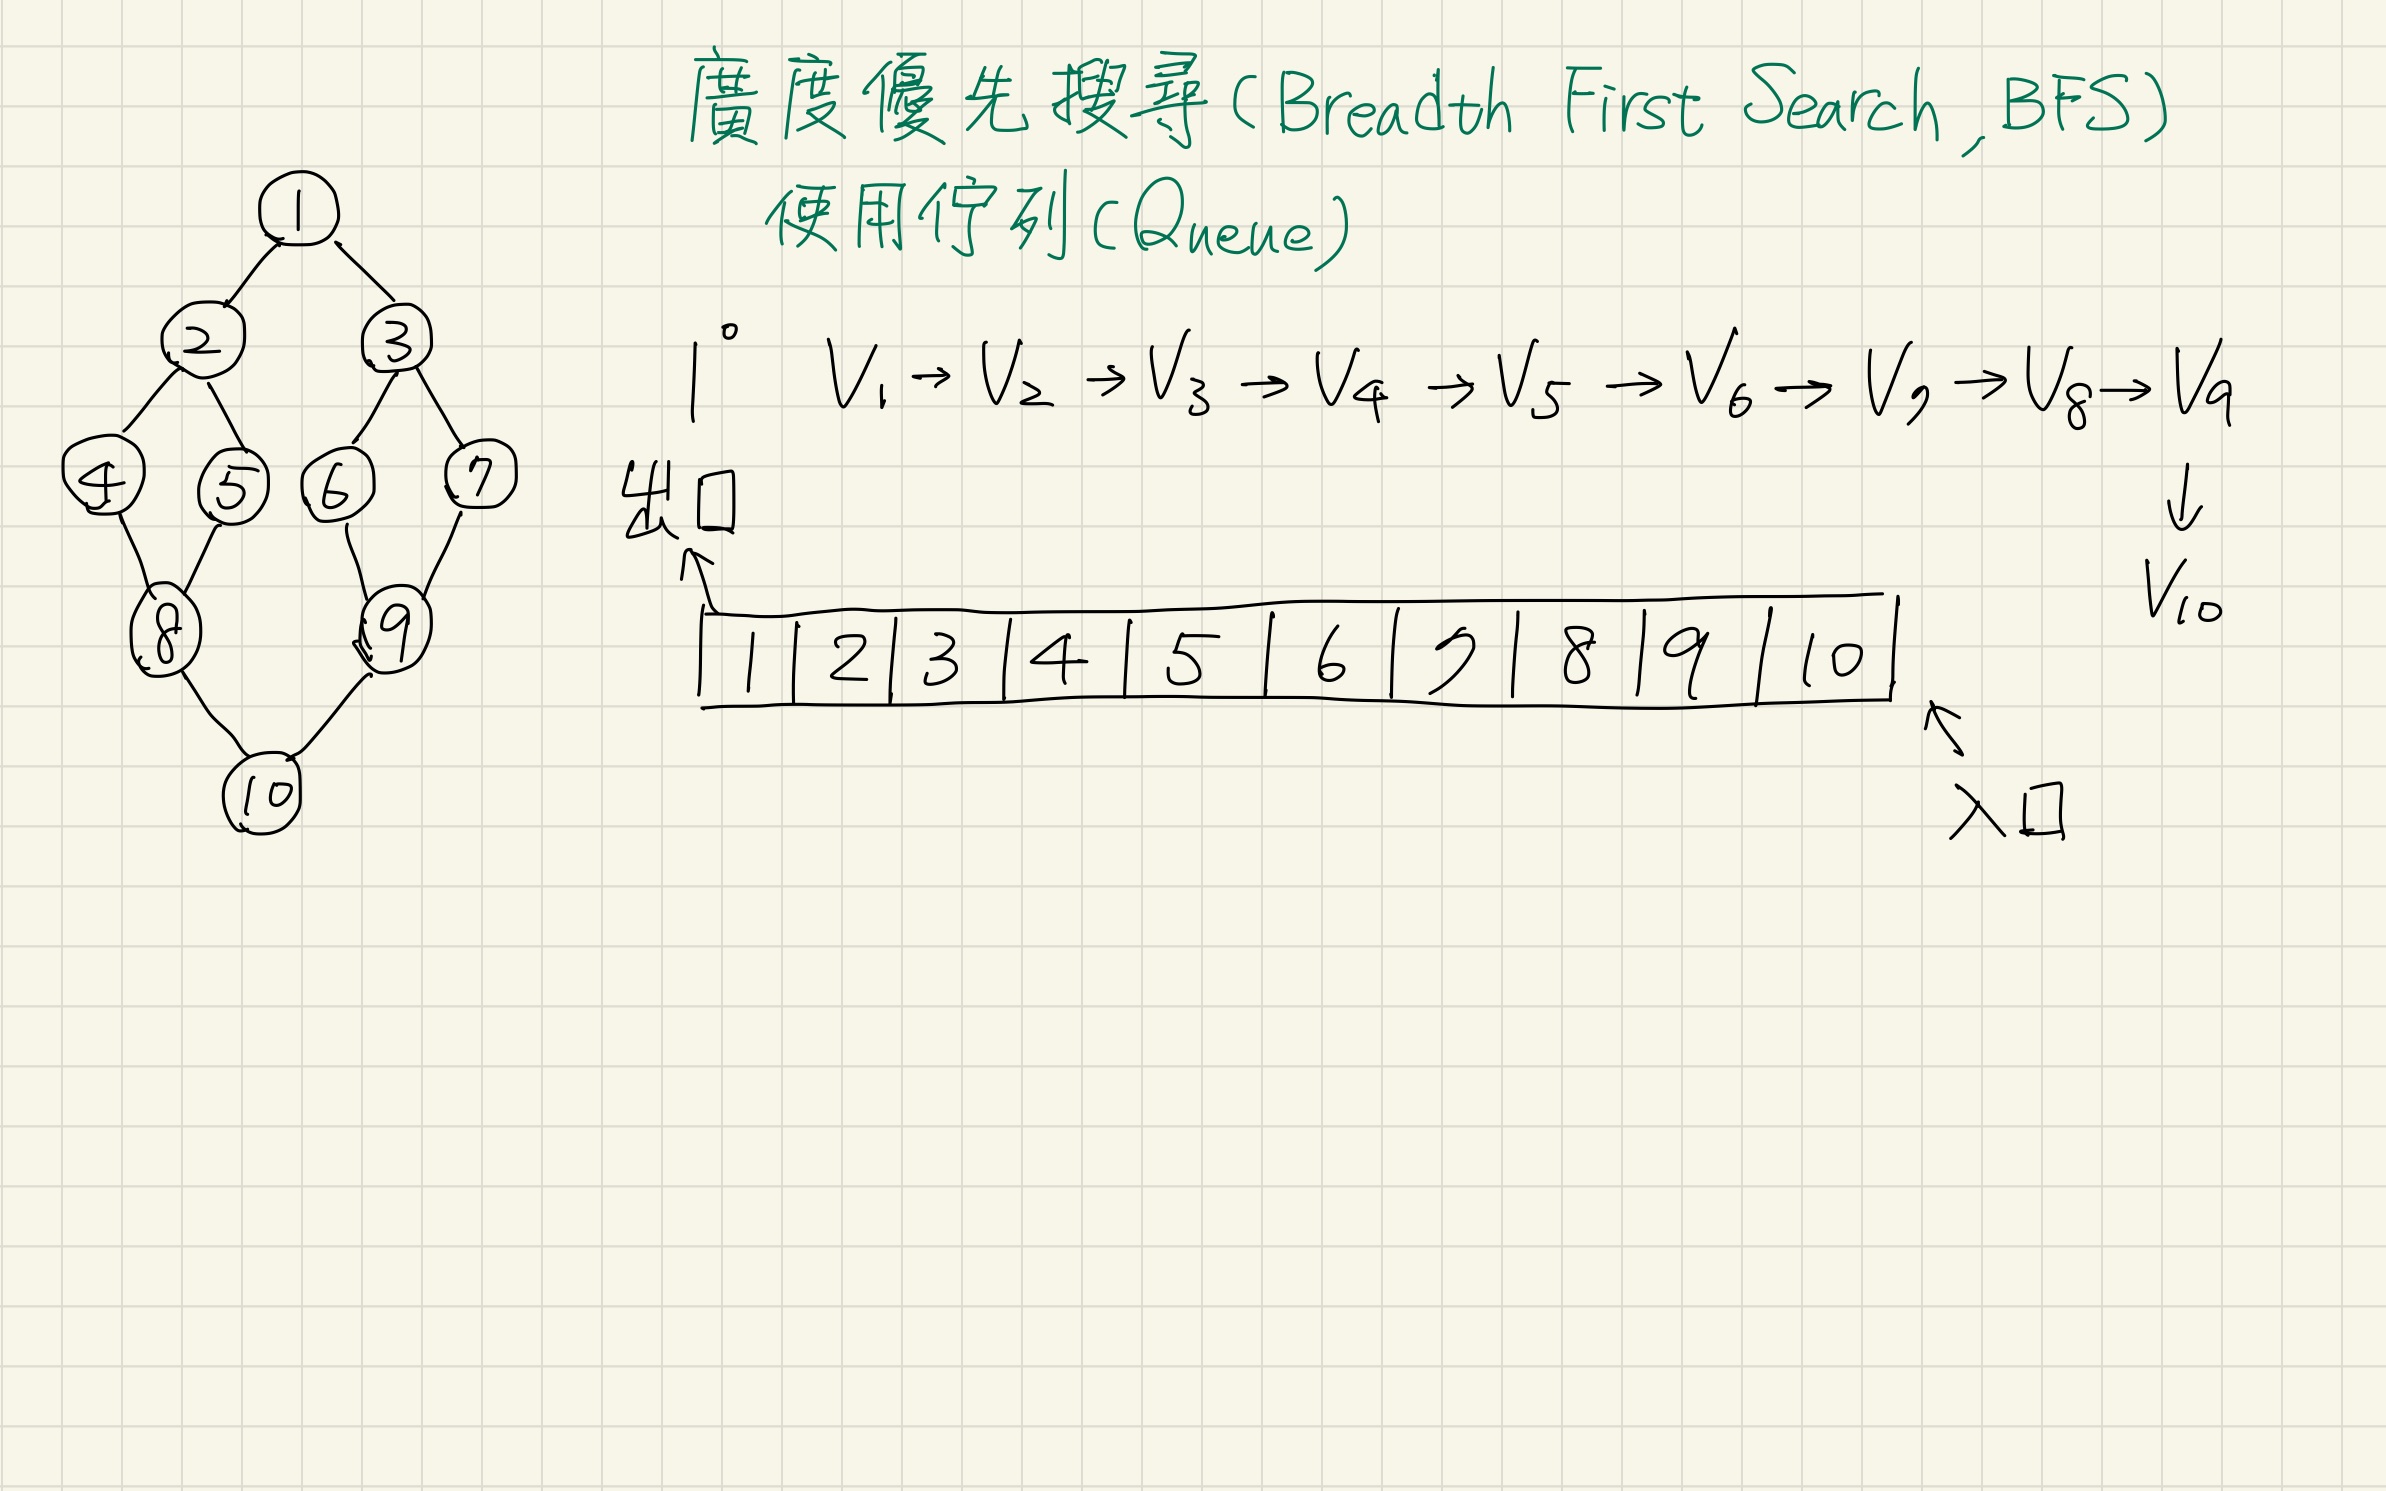 廣度優先搜尋(Breadth First Search, BFS)
使用佇列(Queue)
1
2
3
4
5
6
7
8
9
10
1° V1 → V2 → V3 → V4 → V5 → V6 → V7 → V8 → V9
↓
V10
出口
1 2 3 4 5 6 7 8 9 10
入口